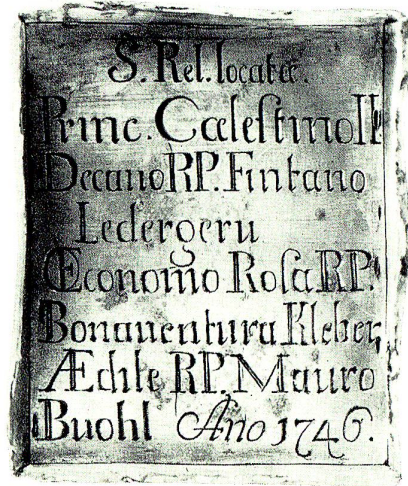 S. Rel. locatæ.
Princ. Cælestino II
Decano RP. Fintano
Ledergeru
Œconomo Rosa RP.
Bonauentura Kleber,
Ædile RP. Mauro
Buohl Año 1746.